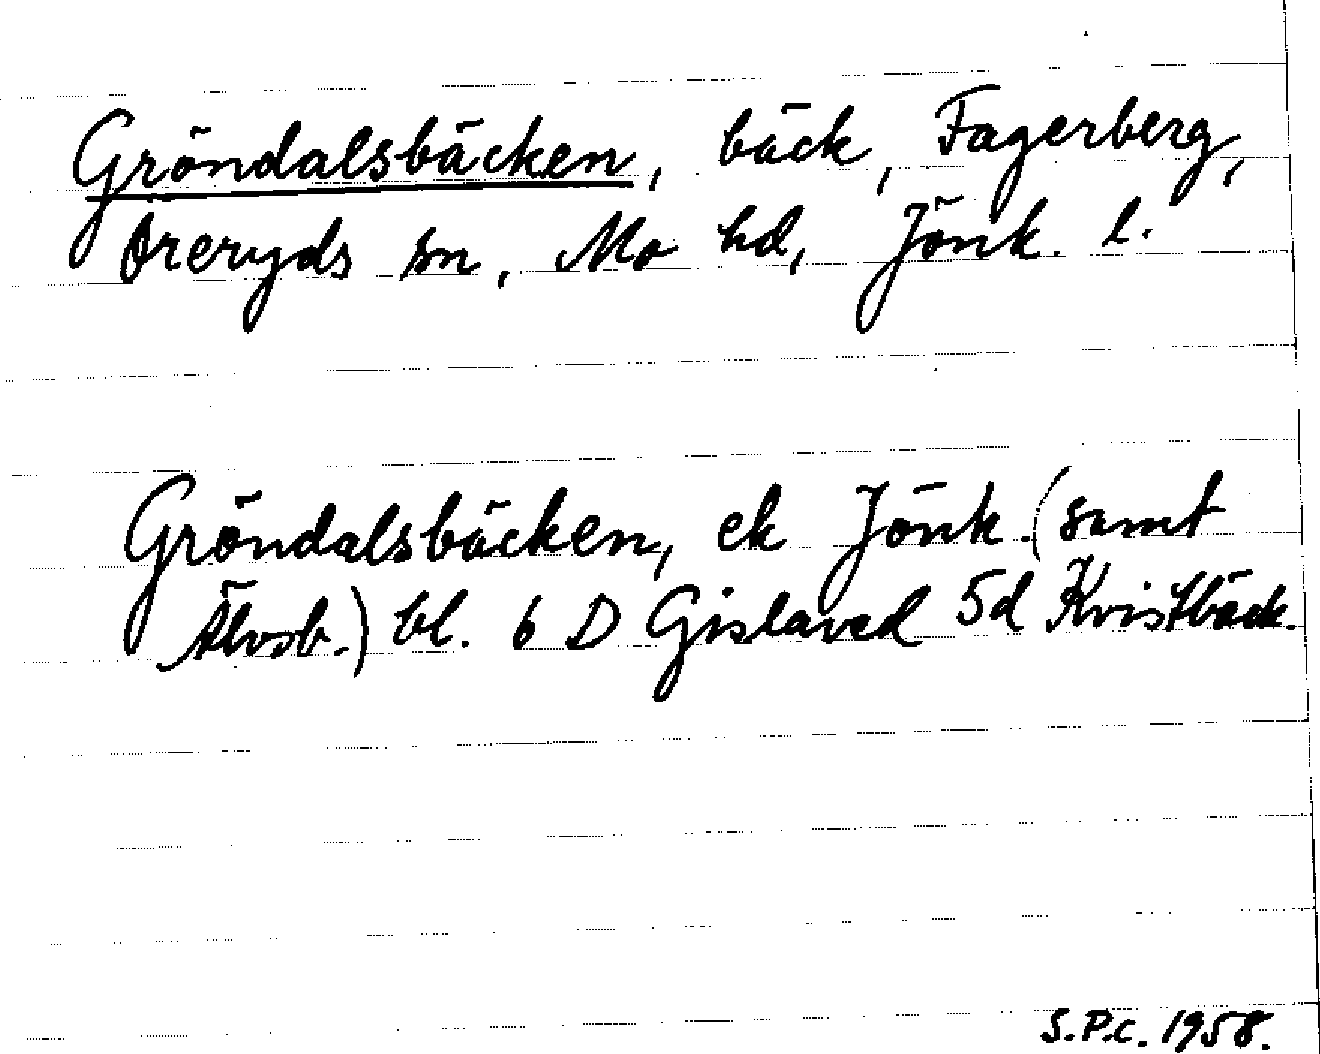 Gröndalsbäcken, bäck, Fagerberg,
Öreryds sn, Mo hd, Jönk. l.
Gröndalsbäcken, ek Jönk. (samt
Älvsb.) bl. 6 D Gislaved 5d Kvistbäck.
S.P.C. 1958.